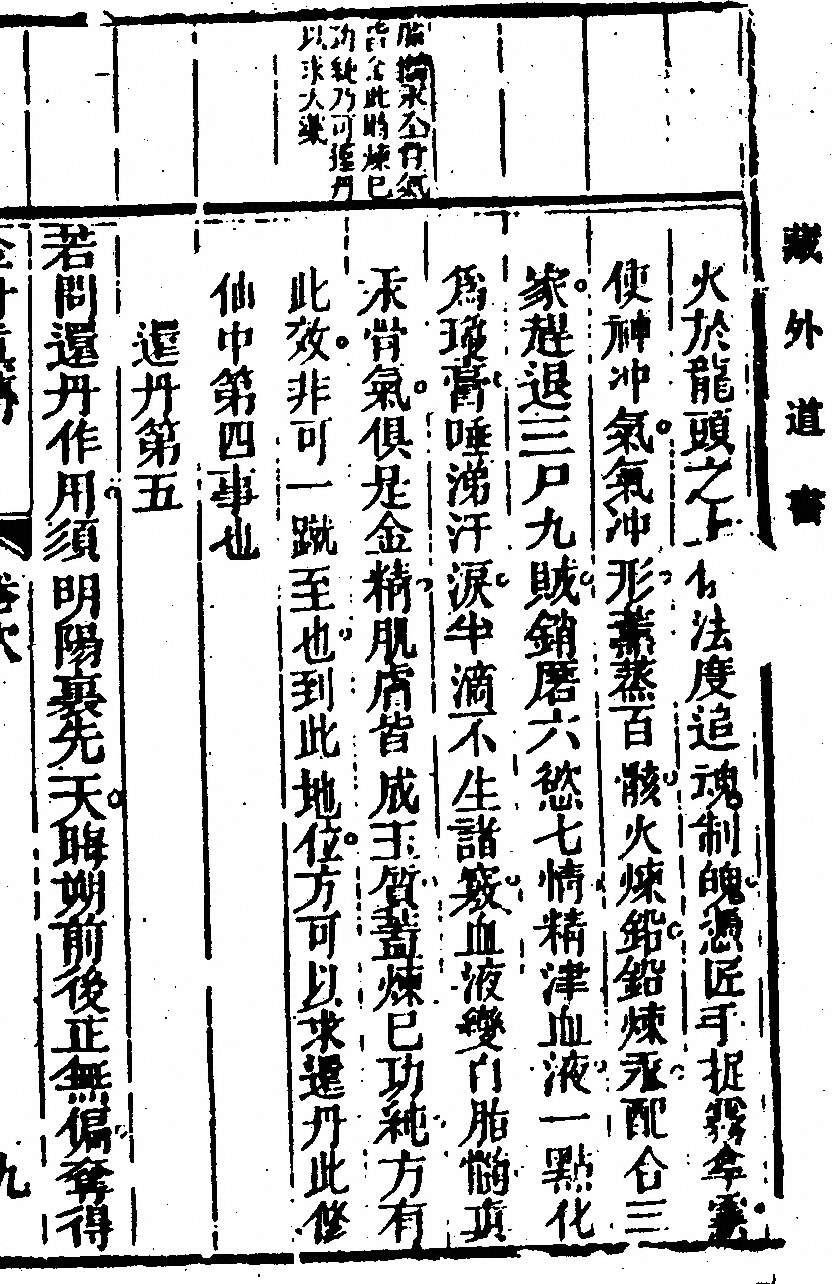 藏外道書
腦髓汞全骨氣
皆全此時煉巳
功純乃可還丹
以求大藥
火於龍頭之上有法度追魂制魄憑匠手捉霧拿雲
使神沖氣氣沖形薰蒸百骸火煉鉛鉛煉汞配合三
家趕退三尸九賊銷磨六慾七情精津血液一點化
爲瓊膏唾涕汗淚半滴不生諸竅血液變白脂髓填
汞骨氣俱足金精肌膚皆成玉質蓋煉巳功純方有
此效非可一蹴至也到此地位方可以求還丹此修
仙中第四事也
還丹第五
若問還丹作用須明陽裏先天晦朔前後正無偏奪得
卷次
九